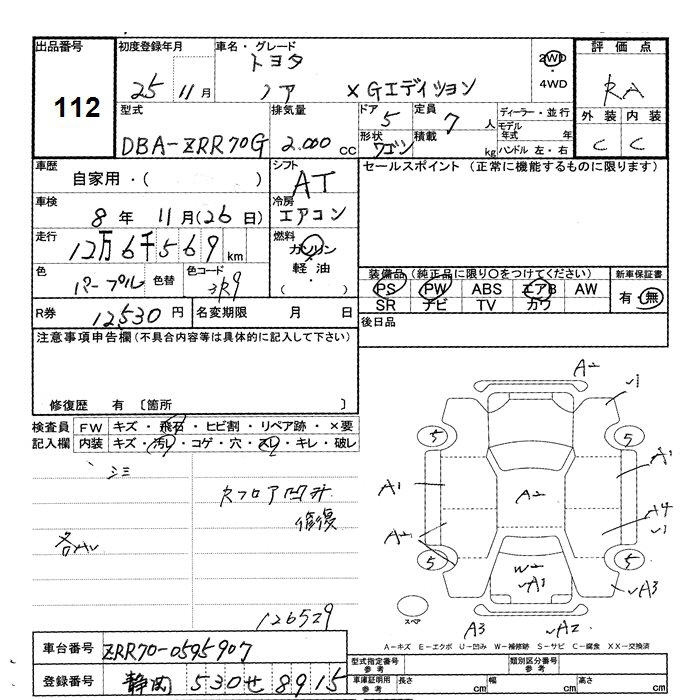 出品番号
112
初度登録年月
25年 11月
車名・グレード
トヨタ
ノア XGエディション
2WD
・
4WD
評価点
RA
外装 内装
C C
型式
DBA-ZRR70G
排気量
2.000 cc
ドア 5
形状 ワゴン
定員 7 人
積載 kg
ディーラー・並行
モデル年式 年
ハンドル 左・右
車歴
自家用・( )
シフト
AT
セールスポイント (正常に機能するものに限ります)
車検
8年 11月(26日)
冷房
エアコン
走行
12万6千569 km
燃料
ガソリン
・
軽油
( )
色
パープル
色替
色コード
装備品 (純正品に限り○をつけてください)
PS PW ABS エアB AW
SR ナビ TV カワ
新車保証書
有・無
R券 12530 円
名変期限 月 日
後日品
注意事項申告欄 (不具合内容等は具体的に記入して下さい)
修復歴 有 〔箇所 〕
検査員記入欄
FW キズ・飛石・ヒビ割・リペア跡・×要
内装 キズ・汚レ・コゲ・穴・スレ・キレ・破レ
シミ
フロア凹み
修復
126579
A2
√1
5
5
A1
A1
A2
A2
A4
√1
5
5
W2
√A1
√A3
スペア
A3
√A2
A-キズ E-エクボ U-凹み W-補修跡 S-サビ C-腐食 XX-交換済
車台番号 ZRR70-0595907
登録番号 静岡 530 せ 8915
型式指定番号 参考
類別区分番号 参考
車庫証明用 参考
長さ cm
幅 cm
高さ cm